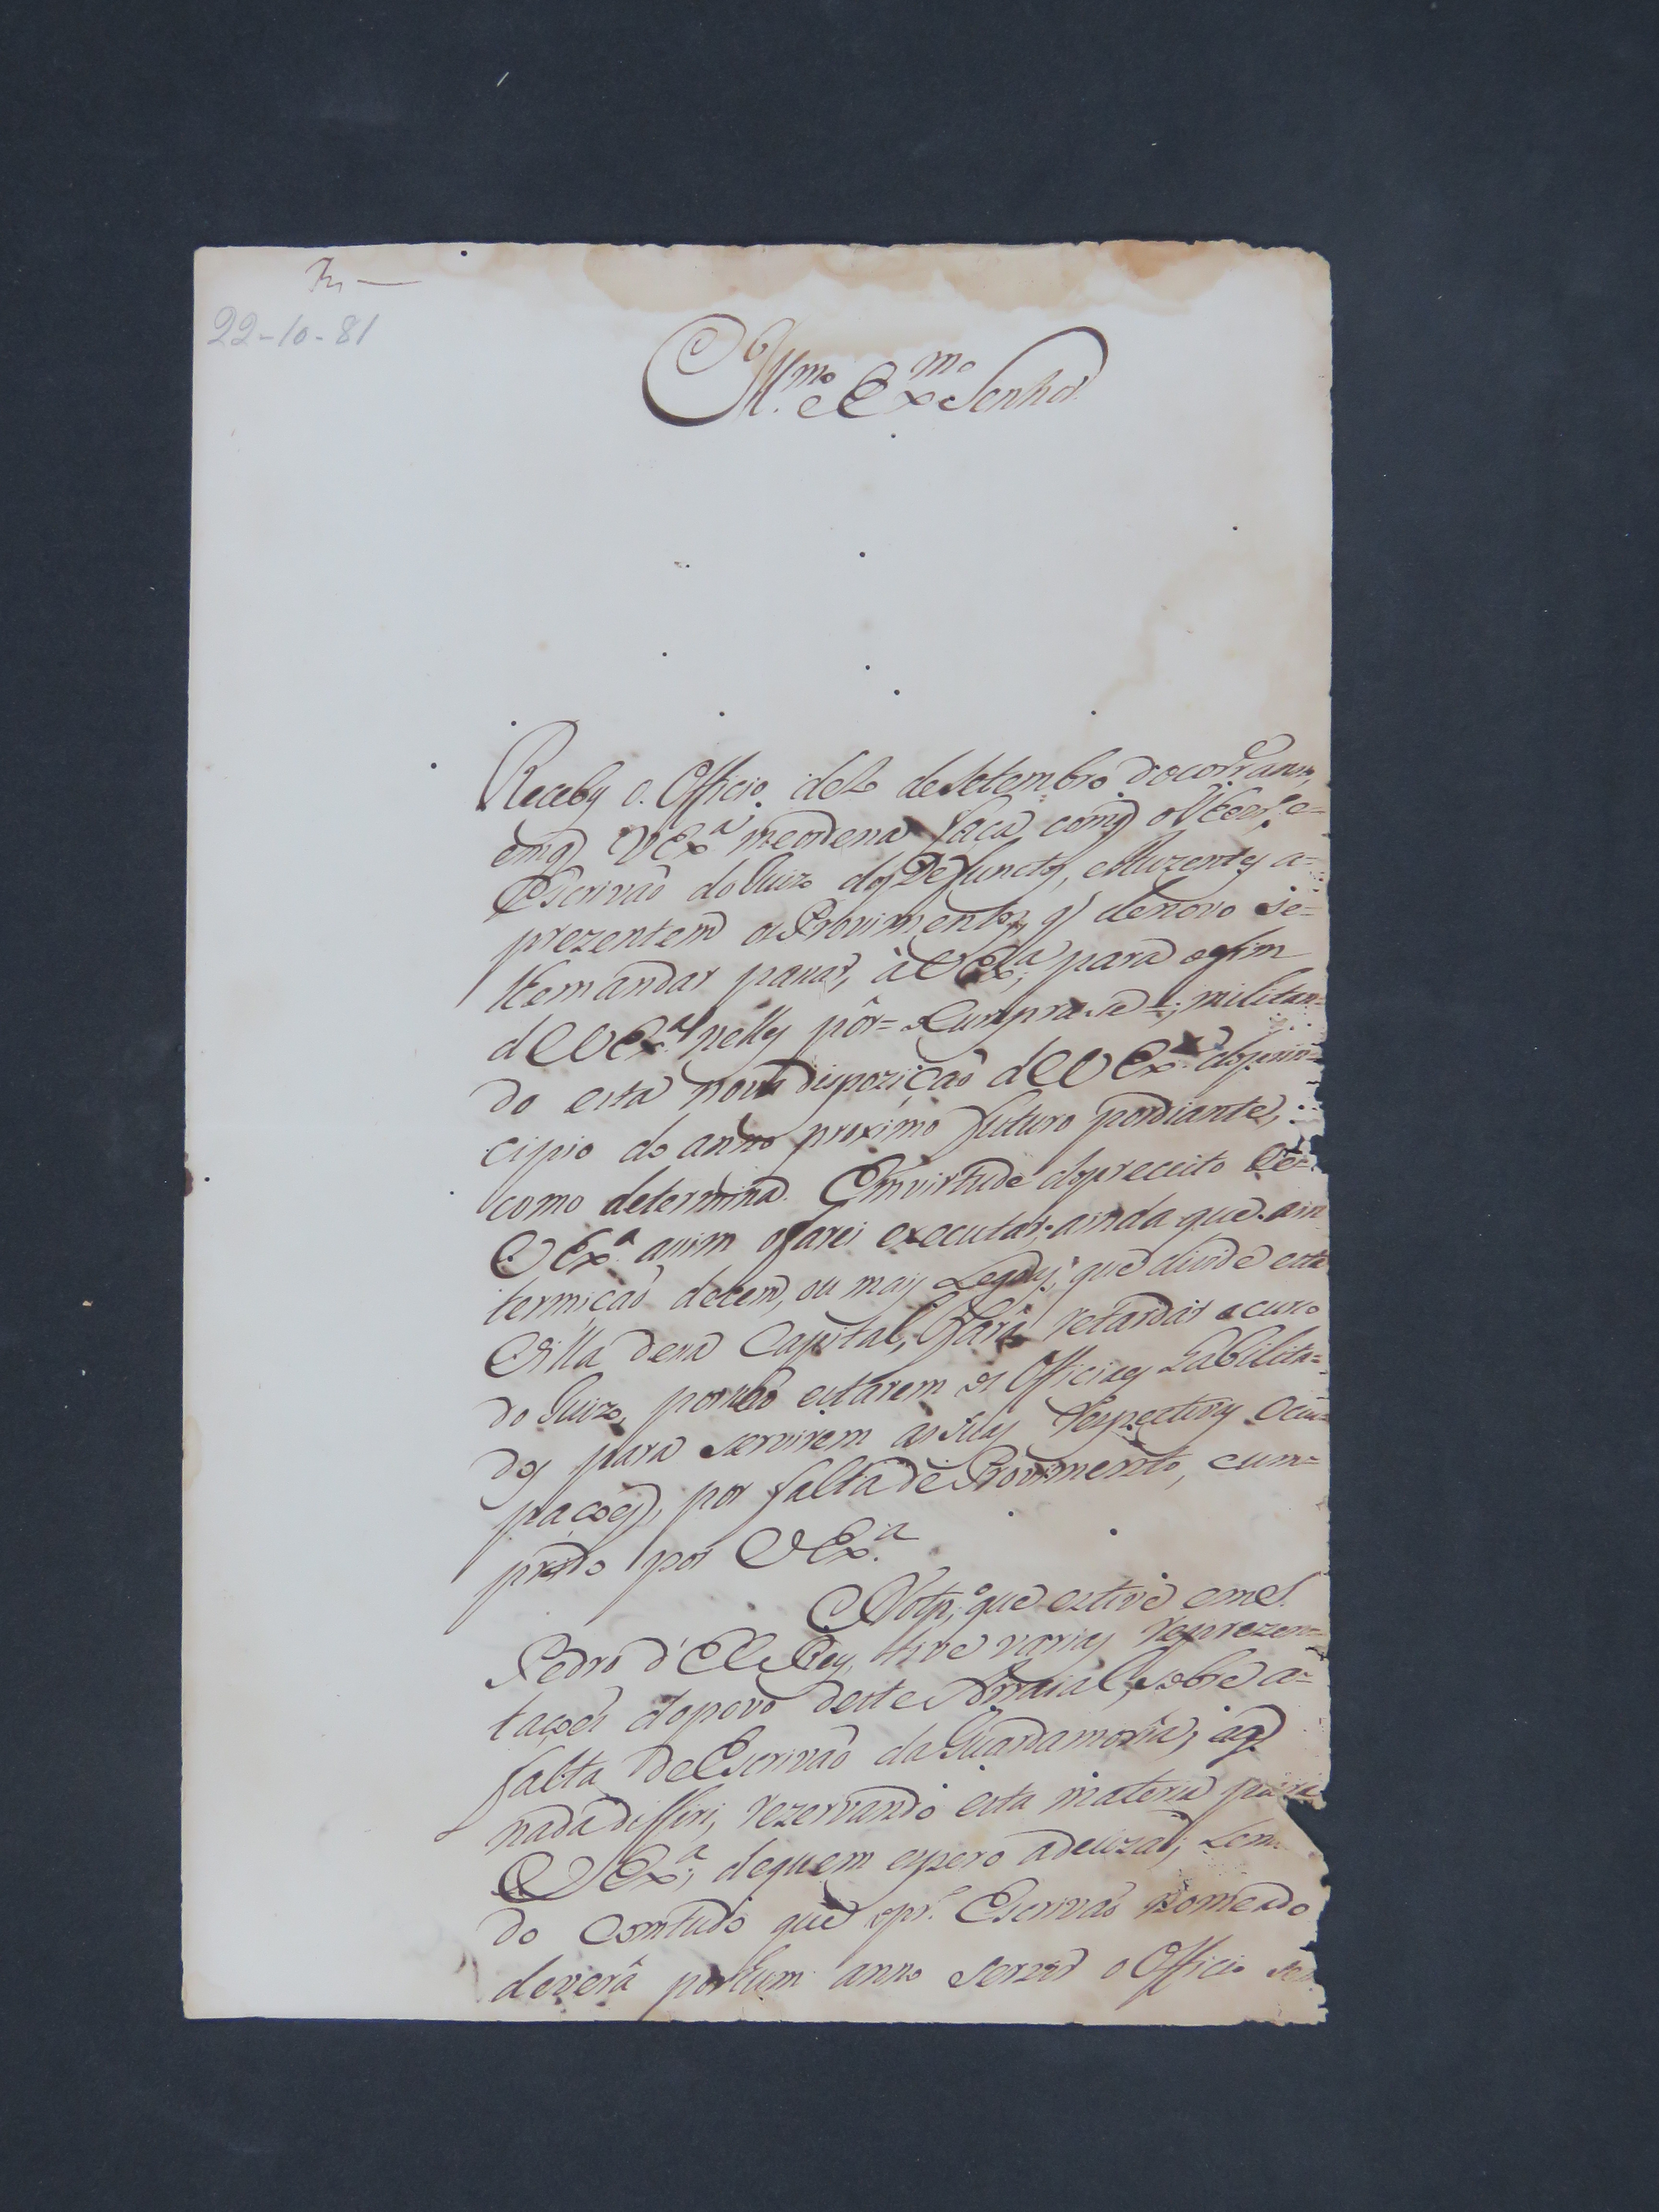 22-10-81
Ill.mo e Ex.mo Senhor
Receby o Officio de 20 de Setembro do corr.e anno,
emq VEx.a meordena faça com q o Thezr.o, e
Escrivaõ do Juizo dos Defunctos, e Auzentes a=
prezentem os Provimentos, q' denovo se=
lhe mandar passar, à VEx.a, para
de VEx.a nelles pôr= Cumpra-se=; militan=
do esta nova dispoziçaõ de VEx.a doprin=
cipio do anno proximo futuro pordiante,
como determina. Emvirtude dopreceito de=
VEx.a assim ofarei executar, ainda que a in
termiçaõ decem, ou mais Legoas, que divide esta
Villa dessa Capital, fará retardar o curso
do Juizo, pornaõ estarem os Officiaes habilita=
dos para servirem as suas respectivas Ocu=
paçoẽs, por falta de Provimento, cum=
prido por VEx.a
Notp.o que estive em S.
Pedro d'El Rey, tive varias reprezen=
taçoẽs dopovo deste Arraial, sobre a=
falta de Escrivaõ da Guardamoria, aq'
nada differi, rezervando esta materia para
VEx.a, dequem espero adecizaõ, Len
do Comtudo que opr. Escrivaõ Nomeado
deverá porhum anno servir o Officio se